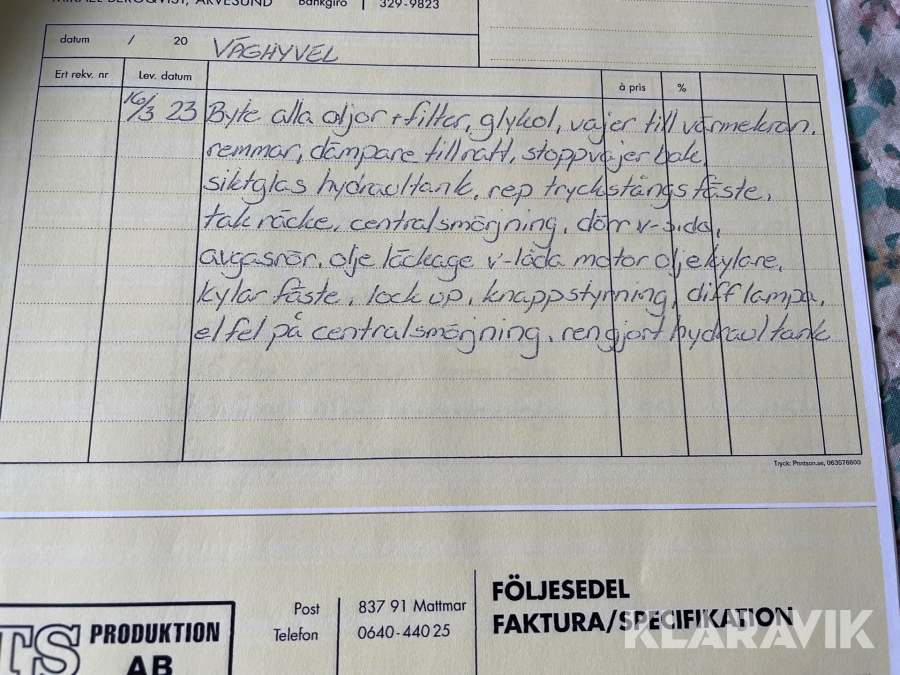 MIKAEL BERGQVIST, ARVESUND Bankgiro 329-9823
datum / 20 VÄGHYVEL
Ert rekv. nr Lev. datum à pris %
16/3 23 Byte alla oljor + filter, glykol, vajer till värmekran,
remmar, dämpare till ratt, stoppvajer bak,
siktglas hydraultank, rep tryckstångsfäste,
takräcke, centralsmörjning, dörr v-sida,
avgasrör, olje läckage v-låda motor oljekylare,
kylar fäste, lock up, knappstyrning, diff lampa,
el fel på centralsmörjning, rengjort hydraultank
Tryck: Printson.se, 063576600
FÖLJESEDEL
Post 837 91 Mattmar
FAKTURA/SPECIFIKATION
Telefon 0640-440 25
TS PRODUKTION
AB
KLARAVIK